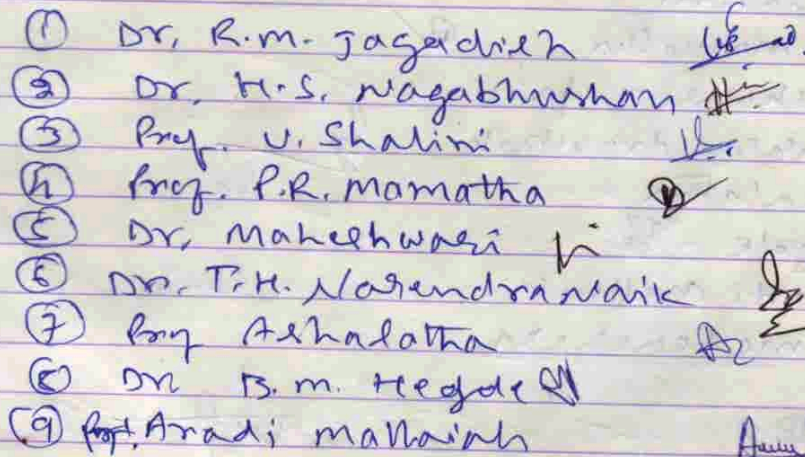 ① Dr. R.M. Jagadish
② Dr. H.S. Nagabhushan
③ Prof. V. Shalini
④ Prof. P.R. Mamatha
⑤ Dr. Maheshwari
⑥ Dr. T.H. Narendra Naik
⑦ Prof Ashalatha
⑧ Dr B.M. Hegde
⑨ Prof. Aradi Mallaiah